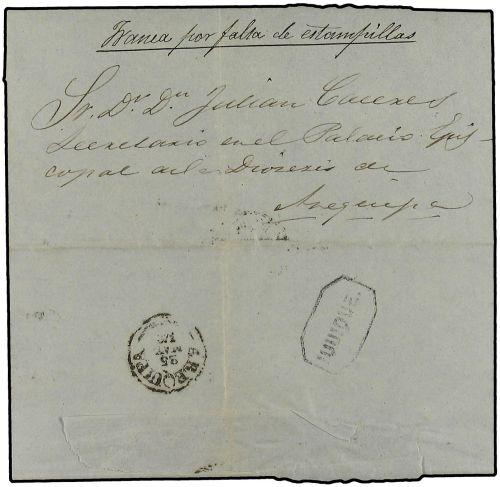 Franca por falta de estampillas
Sr. Dr. Dn Julian Caceres
Secretario en el Palacio Epis-
copal de la Diocesis de
Arequipa
IQUIQUE.
AREQUIPA
25
MAY